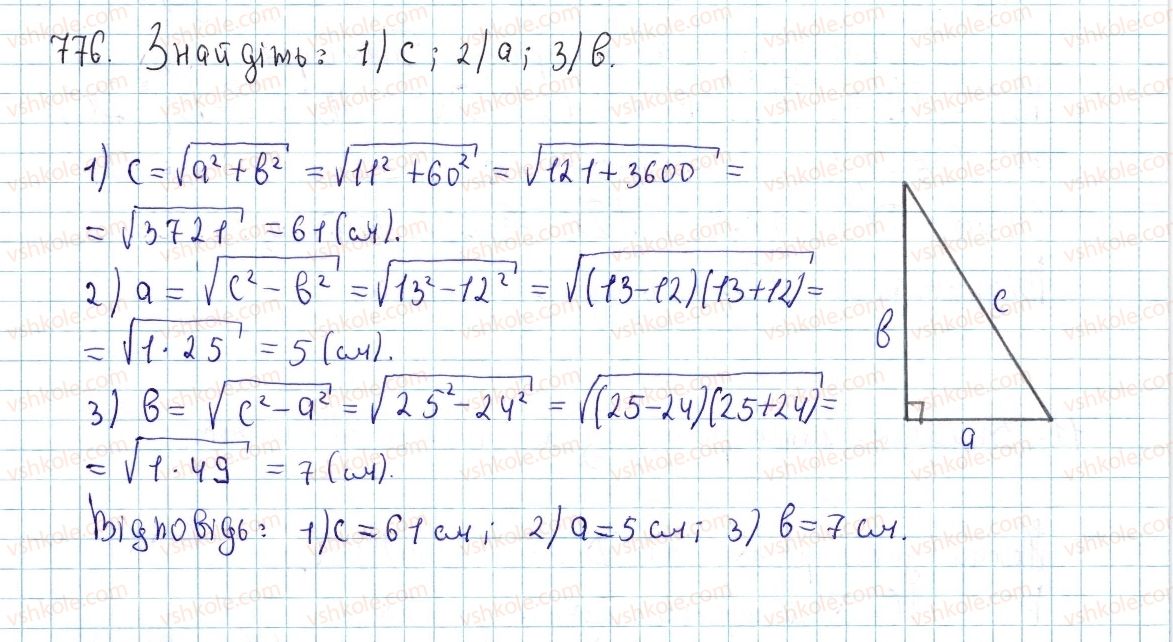 776. Знайдіть: 1) c; 2) a; 3) в.
1) c = √(a² + в²) = √(11² + 60²) = √(121 + 3600) =
= √3721 = 61 (см).
2) a = √(c² - в²) = √(13² - 12²) = √((13-12)(13+12)) =
= √(1·25) = 5 (см).
3) в = √(c² - a²) = √(25² - 24²) = √((25-24)(25+24)) =
= √(1·49) = 7 (см).
Відповідь: 1) c = 61 см; 2) a = 5 см; 3) в = 7 см.
в
c
a
vshkole.com